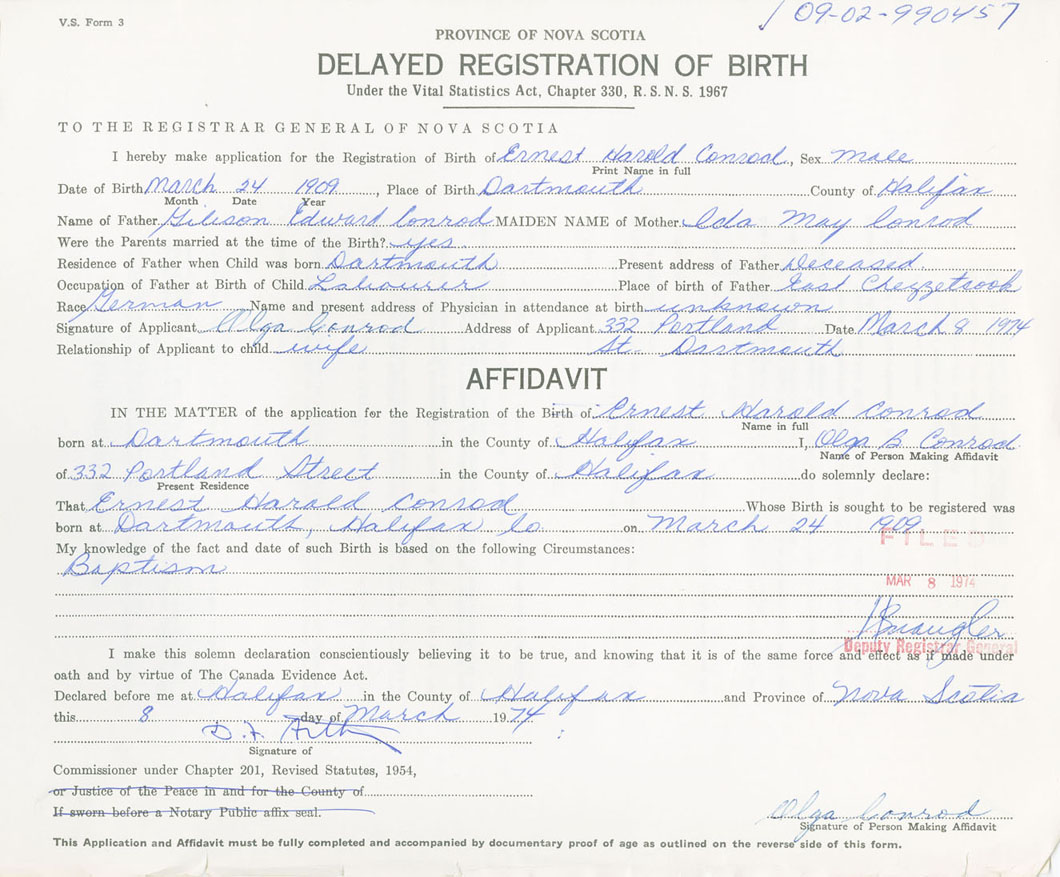 V.S. Form 3
09-02-990457
PROVINCE OF NOVA SCOTIA
DELAYED REGISTRATION OF BIRTH
Under the Vital Statistics Act, Chapter 330, R.S.N.S. 1967
TO THE REGISTRAR GENERAL OF NOVA SCOTIA
I hereby make application for the Registration of Birth of Ernest Harold Conrod, Sex male
Print Name in full
Date of Birth March 24 1909, Place of Birth Dartmouth County of Halifax
Month Date Year
Name of Father Gibson Edward Conrod MAIDEN NAME of Mother Ida May Conrod
Were the Parents married at the time of the Birth? yes
Residence of Father when Child was born Dartmouth Present address of Father Deceased
Occupation of Father at Birth of Child Labourer Place of birth of Father East Chezzetcook
Race German Name and present address of Physician in attendance at birth unknown
Signature of Applicant Olga Conrod Address of Applicant 332 Portland Date March 8 1974
Relationship of Applicant to child wife St. Dartmouth
AFFIDAVIT
IN THE MATTER of the application for the Registration of the Birth of Ernest Harold Conrod
Name in full
born at Dartmouth in the County of Halifax I, Olga B Conrod
Name of Person Making Affidavit
of 332 Portland Street in the County of Halifax do solemnly declare:
Present Residence
That Ernest Harold Conrod Whose Birth is sought to be registered was
born at Dartmouth, Halifax Co on March 24 1909
FILED
My knowledge of the fact and date of such Birth is based on the following Circumstances:
Baptism
MAR 8 1974
Deputy Registrar General
I make this solemn declaration conscientiously believing it to be true, and knowing that it is of the same force and effect as if made under
oath and by virtue of The Canada Evidence Act.
Declared before me at Halifax in the County of Halifax and Province of Nova Scotia
this 8 day of March 1974
Signature of
Commissioner under Chapter 201, Revised Statutes, 1954,
or Justice of the Peace in and for the County of
If sworn before a Notary Public affix seal.
Olga Conrod
Signature of Person Making Affidavit
This Application and Affidavit must be fully completed and accompanied by documentary proof of age as outlined on the reverse side of this form.